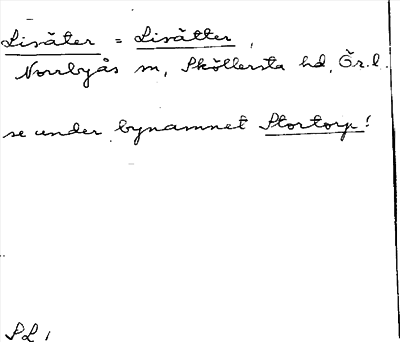 Lisäter = Lisätter,
Norrbyås sn, Sköllersta hd, Ör.l.
se under bynamnet Stortorp!
SL,